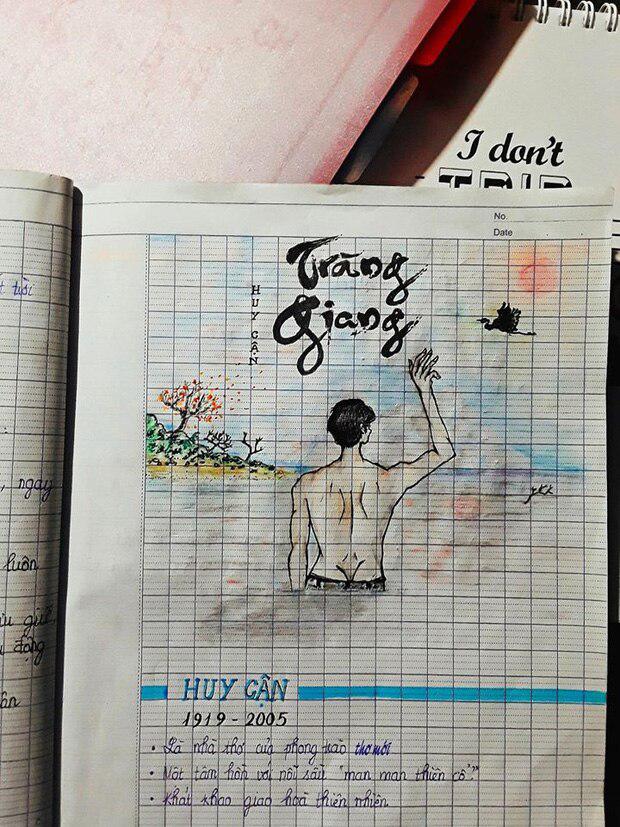 I don't
TRIP
No.
Date
Tràng
Giang
HUY CẬN
t tười
, ngay
luôn
ưu giữ
động
ân
HUY CẬN
1919 - 2005
• Là nhà thơ của phong trào thơ mới
• Một tâm hồn với nỗi sầu "man man thiên cổ"
• Khát khao giao hoà thiên nhiên